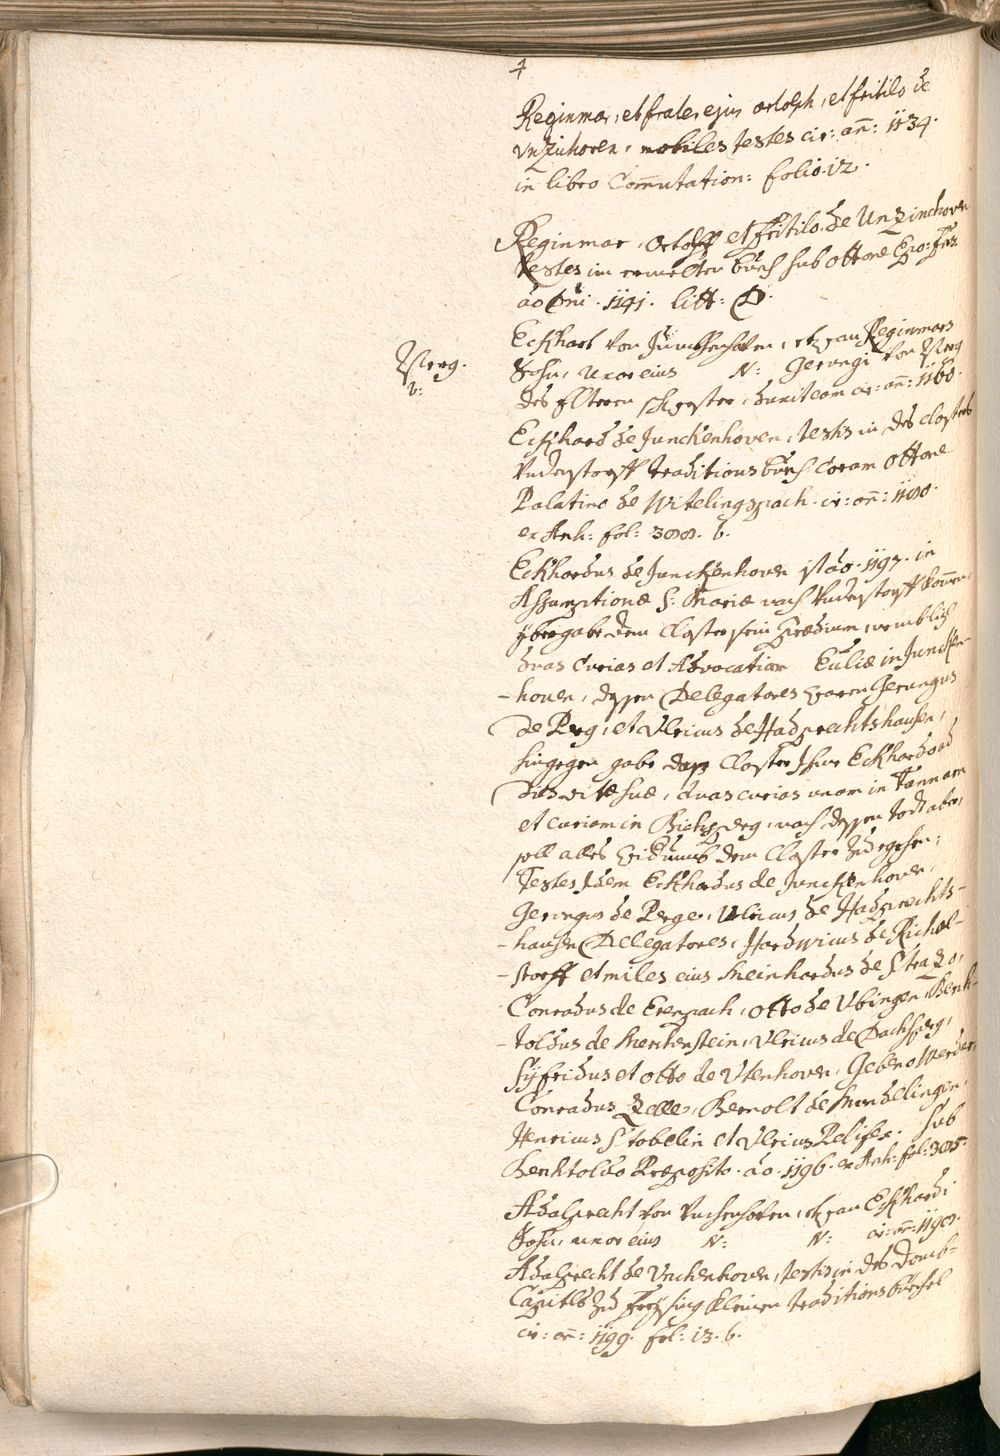 4
Reginmar, et frater ejus ortolph, et fritilo de
Unzinhoven, nobiles testes cir: añ: 1134.
in libro Com̃utation: folio. 12.
Reginmar, Ortolff et fritilo. de Unzinchoven
testes im ermelten buech sub ottone Epo: fris:
ao Dni. 1141. litt: D.
Eckhart von Junckhenhoven, etwan Reginmars
Perg.
Sohn, uxor eius N: Gerungi von Perg
v:
des Elteren schwester, duxit eam cir: añ: 1160.
Eckhard de Junckenhoven, testis in des closters
Understorff traditions buech coram ottone
Palatino de Witelingspach. cir: añ: 1180.
ex Arch: fol: 388. b.
Eckhardus de Junckhenhoven ist ao. 1197. in
Assumptione S: Mariæ nach Understorff kom̃en,
ybergabe dem Closter sein prædium, nemblich
duas curias et Advocatiam Eccliæ in Juncken-
-hoven, dessen Delegatores waren Gerungus
de Perg, et Ulricus de Hadprechtshausen,
hingegen gabe das Closter Ihme Eckhardo ad
dies vitæ suæ, duas curias unam in Tannarn
et curiam in Richsperg, nach dessen todt aber,
soll alles widerumb dem Closter zuegehen;
Testes Idem Eckhardus de Junckenhoven,
Gerungus de Perge, Ulricus de Hadprechts-
-hausen Delegatores, Hardwicus de Richol-
-storff et miles eius Meinhardus de Strazo,
Conradus de Erenpach, otto de Ubingen, Berch-
-toldus de Merchenstein, Ulricus de Dachsperg,
Syfridus et otto de Utenhoven, Gebeno Werder,
Conradus Zelle, Bernolt de Mundelingen,
Henricus Strobelin et Ulricus Pelifex. sub
Berchtoldo Præposito. ao. 1196. ex Arch: fol: 385.
Adalprecht von Unchenhoven, etwan Eckhardi
Sohn, uxor eius N: N: cir: añ: 1190.
Adalprecht de Unchenhoven, testis in des Domb-
Capitls zu Freysing kleinen traditions buechel
cir: añ: 1199. fol: 13. b.